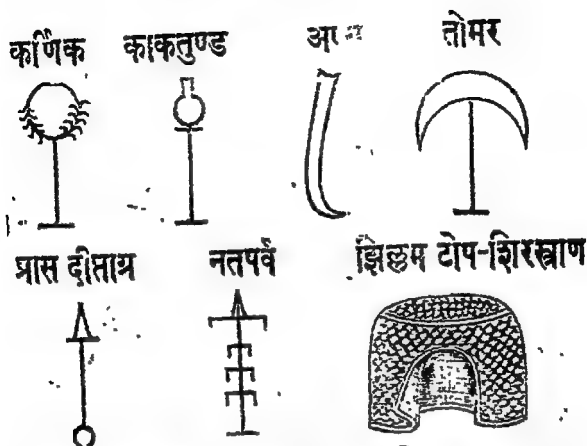 कर्णिक काकतुण्ड तोमर
प्रास दीप्ताग्र नतपर्व झिल्लम टोप-शिरस्त्राण